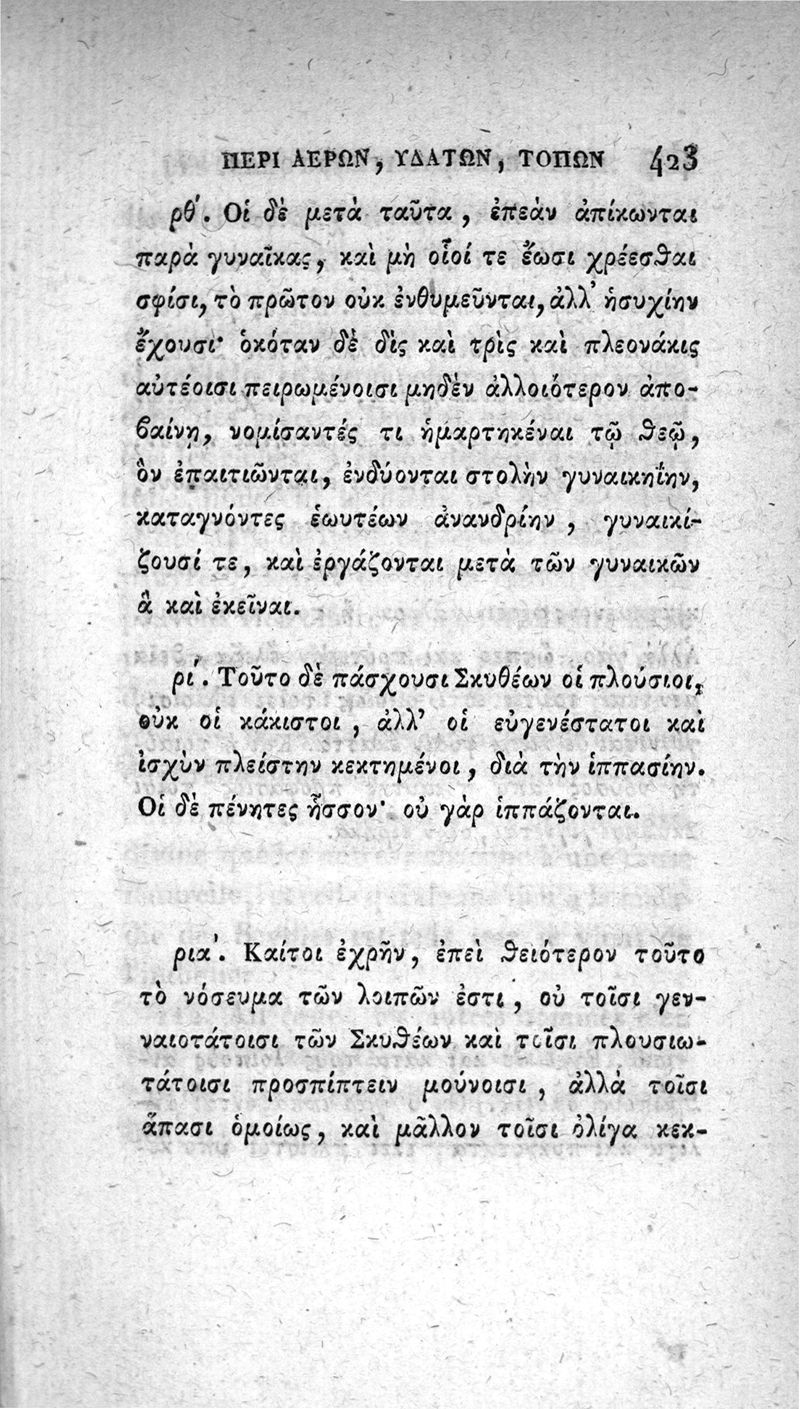 ΠΕΡΙ ΑΕΡΩΝ, ΥΔΑΤΩΝ, ΤΟΠΩΝ 423
ρθ΄. Οἱ δὲ μετὰ ταῦτα, ἐπεὰν ἀπίκωνται
παρὰ γυναῖκας, καὶ μὴ οἷοί τε ἔωσι χρέεσθαι
σφίσι, τὸ πρῶτον οὐκ ἐνθυμεῦνται, ἀλλ' ἡσυχίην
ἔχουσι· ὁκόταν δὲ δὶς καὶ τρὶς καὶ πλεονάκις
αὐτέοισι πειρωμένοισι μηδὲν ἀλλοιότερον ἀπο-
βαίνῃ, νομίσαντές τι ἡμαρτηκέναι τῷ θεῷ,
ὃν ἐπαιτιῶνται, ἐνδύονται στολὴν γυναικηΐην,
καταγνόντες ἑωυτέων ἀνανδρίην, γυναικί-
ζουσί τε, καὶ ἐργάζονται μετὰ τῶν γυναικῶν
ἃ καὶ ἐκεῖναι.
ρι΄. Τοῦτο δὲ πάσχουσι Σκυθέων οἱ πλούσιοι,
οὐκ οἱ κάκιστοι, ἀλλ' οἱ εὐγενέστατοι καὶ
ἰσχὺν πλείστην κεκτημένοι, διὰ τὴν ἱππασίην.
Οἱ δὲ πένητες ἧσσον· οὐ γὰρ ἱππάζονται.
ρια΄. Καίτοι ἐχρῆν, ἐπεὶ θειότερον τοῦτο
τὸ νόσευμα τῶν λοιπῶν ἐστι, οὐ τοῖσι γεν-
ναιοτάτοισι τῶν Σκυθέων καὶ τοῖσι πλουσιω-
τάτοισι προσπίπτειν μούνοισι, ἀλλὰ τοῖσι
ἅπασι ὁμοίως, καὶ μᾶλλον τοῖσι ὀλίγα κεκ-